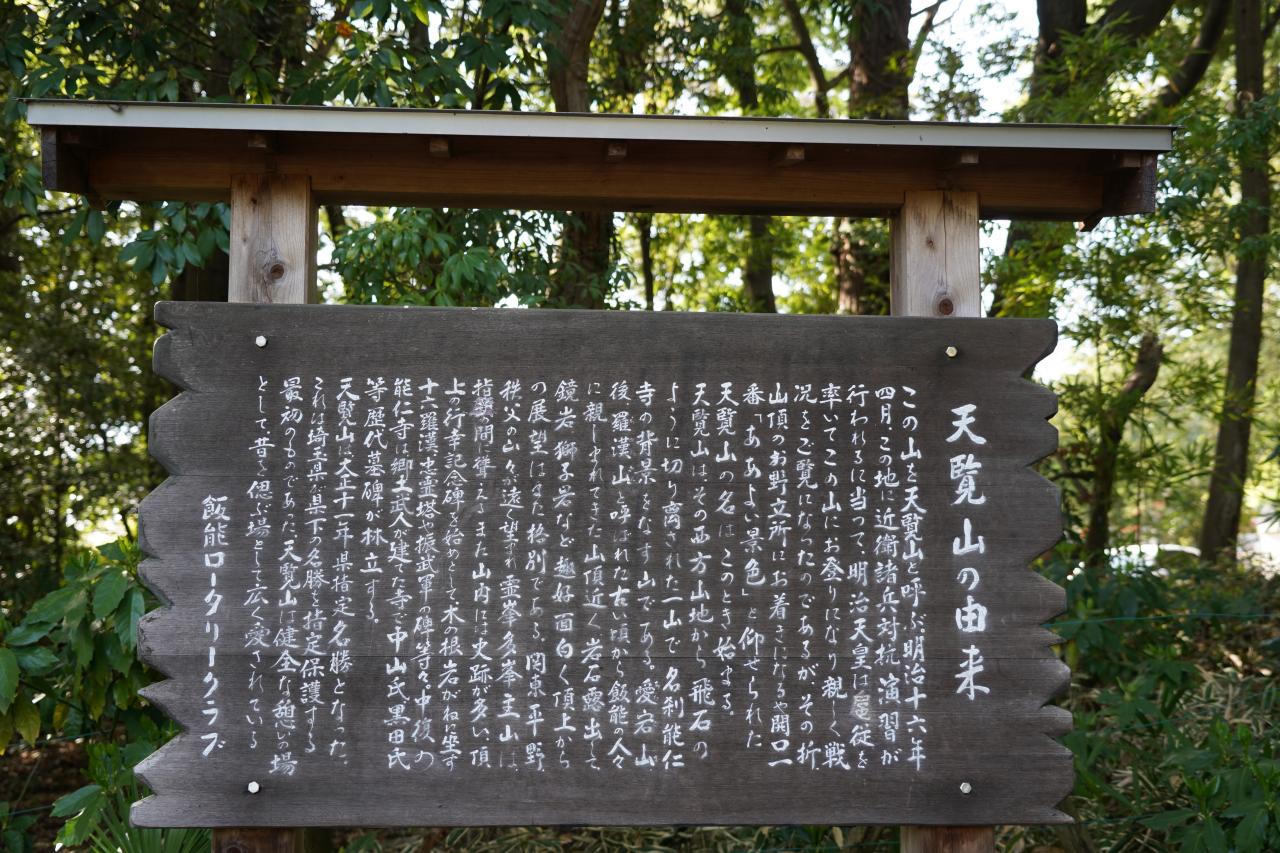 天覧山の由来
この山を天覧山と呼ぶ、明治十六年
四月、この地に近衛諸兵対抗演習が
行われるに当って、明治天皇は扈従を
率いてこの山にお登りになり親しく戦
況をご覧になったのであるが、その折、
山頂のお野立所にお着きになるや開口一
番「ああよい景色」と仰せられた
天覧山の名はこのとき始まる。
天覧山はその西方山地から飛石の
ように切り離された一山で名刹能仁
寺の背景をなす山である。愛宕山、
後羅漢山と呼ばれた古い頃から飯能の人々
に親しまれてきた山頂近く岩石露出して、
鏡岩獅子岩など趣好面白く頂上から
の展望はまた格別である。関東平野、
秩父の山々が遠く望まれ霊峯多峯主山は、
指呼の間に聳えるまた山内には史跡が多い頂
上の行幸記念碑を始めとして木の根岩がねに坐す
十六羅漢、忠霊塔や振武軍の碑等々中復の
能仁寺は郷土武人が建てた寺で中山氏黒田氏
等歴代墓碑が林立する。
天覧山は大正十一年県指定名勝となった、
これは埼玉県が県下の名勝を指定保護する
最初のものであった、天覧山は健全な憩いの場
として昔を偲ぶ場として広く愛されている
飯能ロータリークラブ